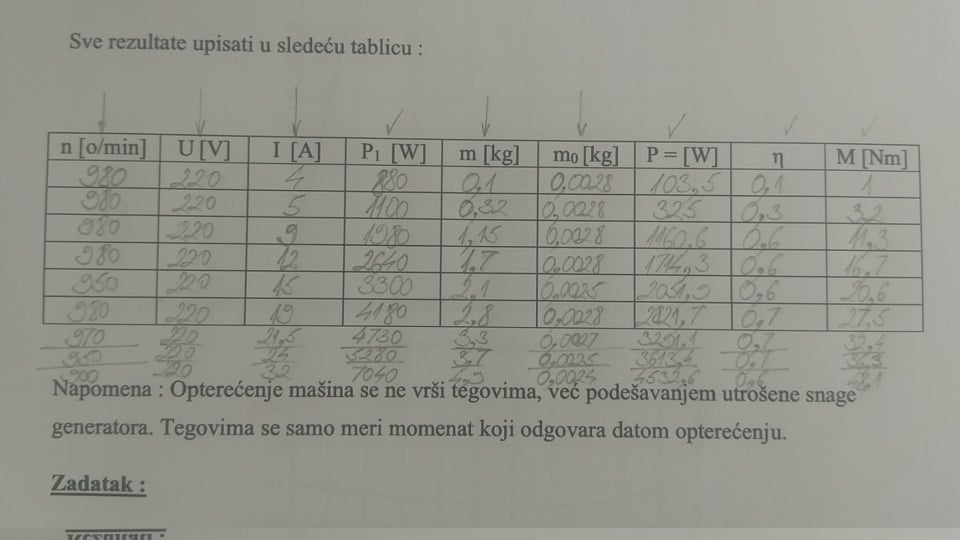 Sve rezultate upisati u sledeću tablicu :
n [o/min] U [V] I [A] P₁ [W] m [kg] m₀ [kg] P = [W] η M [Nm]
980 220 4 880 0,1 0,0028 103,5 0,1 1
980 220 5 1100 0,32 0,0028 325 0,3 3,2
980 220 9 1980 1,15 0,0028 1160,6 0,6 11,3
980 220 12 2640 1,7 0,0028 1714,3 0,6 16,7
950 220 15 3300 2,1 0,0025 2051,9 0,6 20,6
980 220 19 4180 2,8 0,0028 2821,7 0,7 27,5
970 220 21,5 4730 3,3 0,0027 3291,1 0,7 32,4
950 220 24 5280 3,7 0,0025 3613,4 36,3
900 220 32 7040 4,9 0,0024 4532,6 48,1
Napomena : Opterećenje mašina se ne vrši tegovima, već podešavanjem utrošene snage
generatora. Tegovima se samo meri momenat koji odgovara datom opterećenju.
Zadatak :